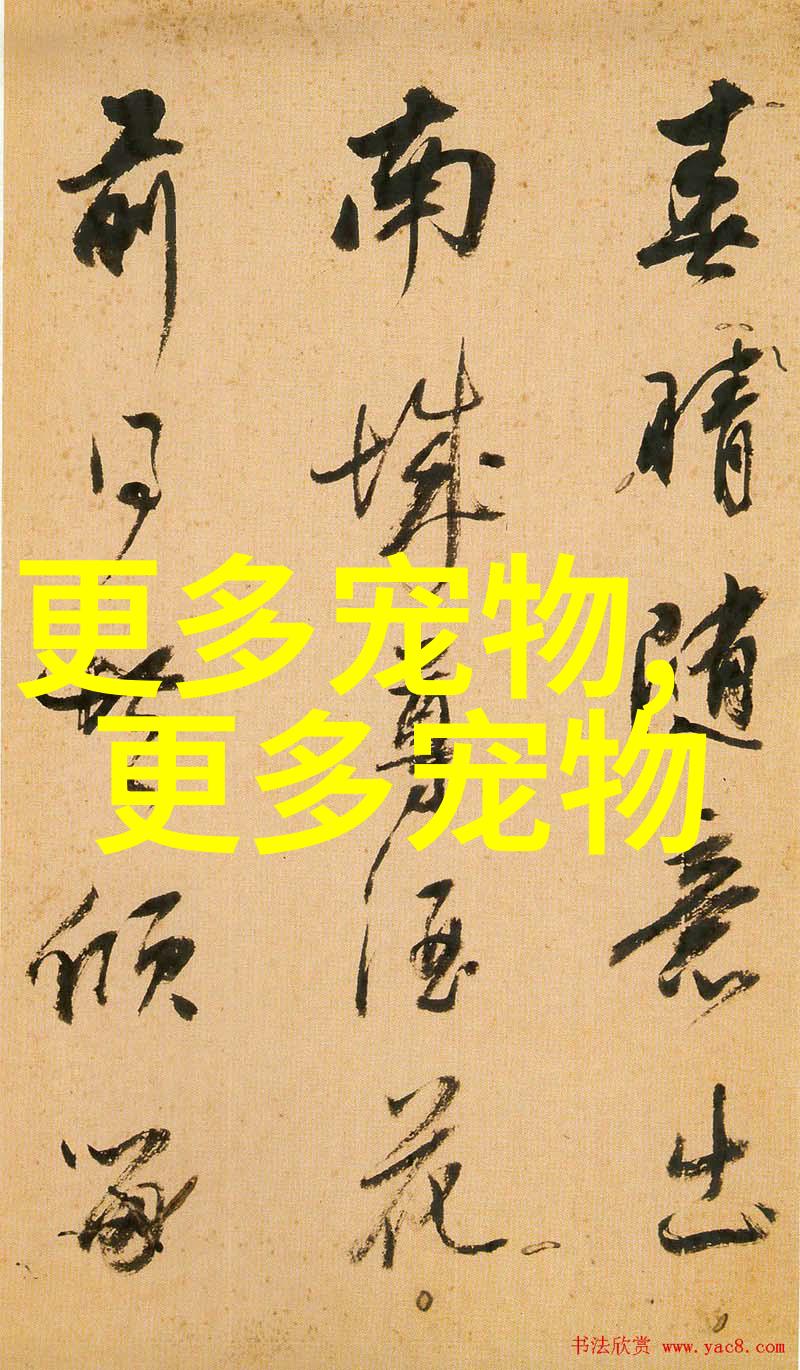 春晴随意出
南城尊酒花
前倾
更多宠物,
更多宠物
书法欣赏 www.yac8.com